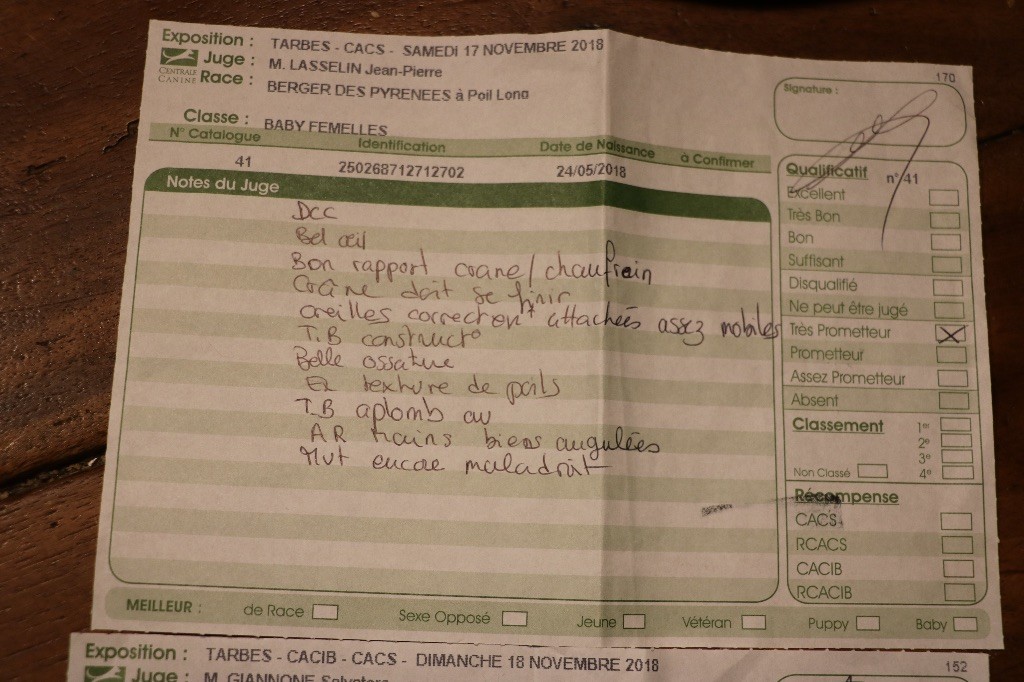 Exposition : TARBES - CACS - SAMEDI 17 NOVEMBRE 2018
Juge : M. LASSELIN Jean-Pierre
170
CENTRALE CANINE
Race : BERGER DES PYRENEES à Poil Long
Signature :
Classe : BABY FEMELLES
N° Catalogue Identification Date de Naissance à Confirmer
41 250268712712702 24/05/2018
Notes du Juge
Dcc
Bel œil
Bon rapport crane/chaufrein
Crâne doit se finir
oreilles correcten* attachées assez mobiles
T.B construct°
Belle ossature
Ex texture de poils
T.B aplomb av
AR trains biens angulées
Mvt encore maladroit
Qualificatif n° 41
Excellent
Très Bon
Bon
Suffisant
Disqualifié
Ne peut être jugé
Très Prometteur
Prometteur
Assez Prometteur
Absent
Classement 1er
2e
3e
Non Classé 4e
Récompense
CACS
RCACS
CACIB
RCACIB
MEILLEUR : de Race Sexe Opposé Jeune Vétéran Puppy Baby
Exposition : TARBES - CACIB - CACS - DIMANCHE 18 NOVEMBRE 2018
152
Juge : M. GIANNONE Salvatore